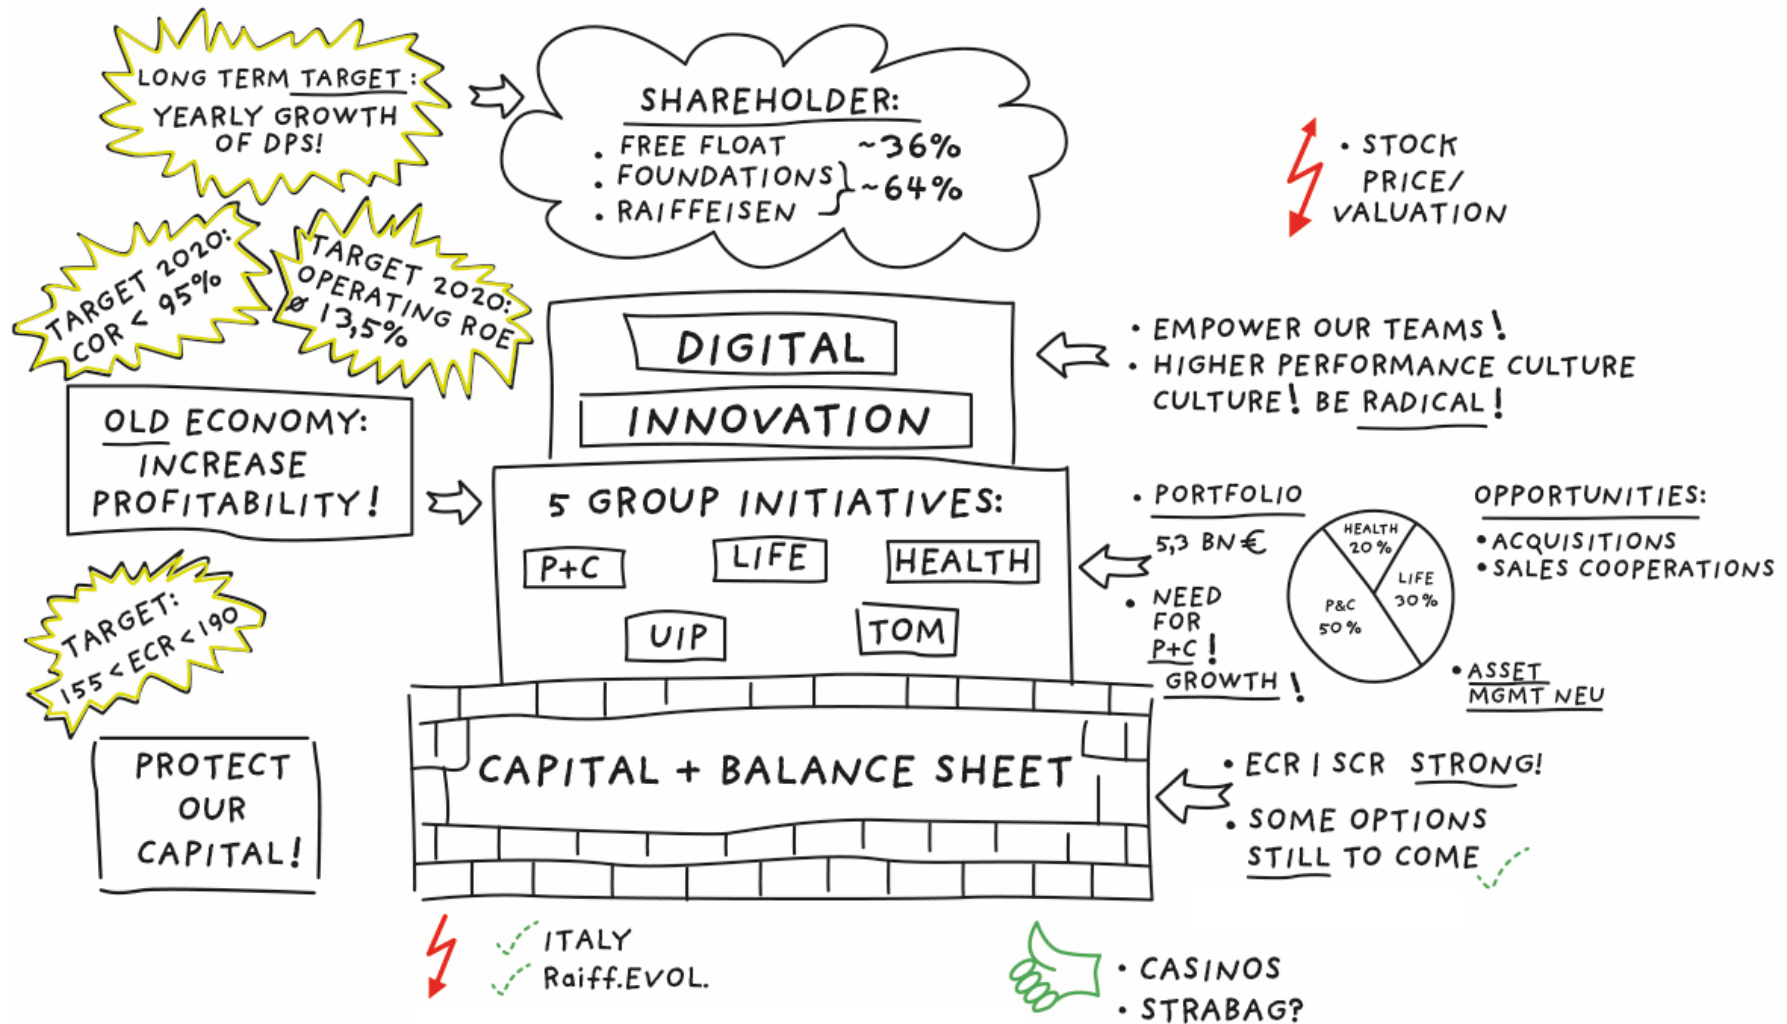 LONG TERM TARGET:
YEARLY GROWTH
OF DPS!
SHAREHOLDER:
• FREE FLOAT ~36%
• FOUNDATIONS
• RAIFFEISEN
~64%
• STOCK
PRICE/
VALUATION
TARGET 2020:
COR < 95%
TARGET 2020:
OPERATING ROE
ø 13,5%
DIGITAL
INNOVATION
• EMPOWER OUR TEAMS!
• HIGHER PERFORMANCE CULTURE
CULTURE! BE RADICAL!
OLD ECONOMY:
INCREASE
PROFITABILITY!
5 GROUP INITIATIVES:
P+C
LIFE
HEALTH
UIP
TOM
• PORTFOLIO
5,3 BN €
• NEED
FOR
P+C!
GROWTH!
HEALTH
20%
LIFE
30%
P&C
50%
OPPORTUNITIES:
• ACQUISITIONS
• SALES COOPERATIONS
• ASSET
MGMT NEU
TARGET:
155 < ECR < 190
PROTECT
OUR
CAPITAL!
CAPITAL + BALANCE SHEET
• ECR | SCR STRONG!
• SOME OPTIONS
STILL TO COME
ITALY
Raiff.EVOL.
• CASINOS
• STRABAG?